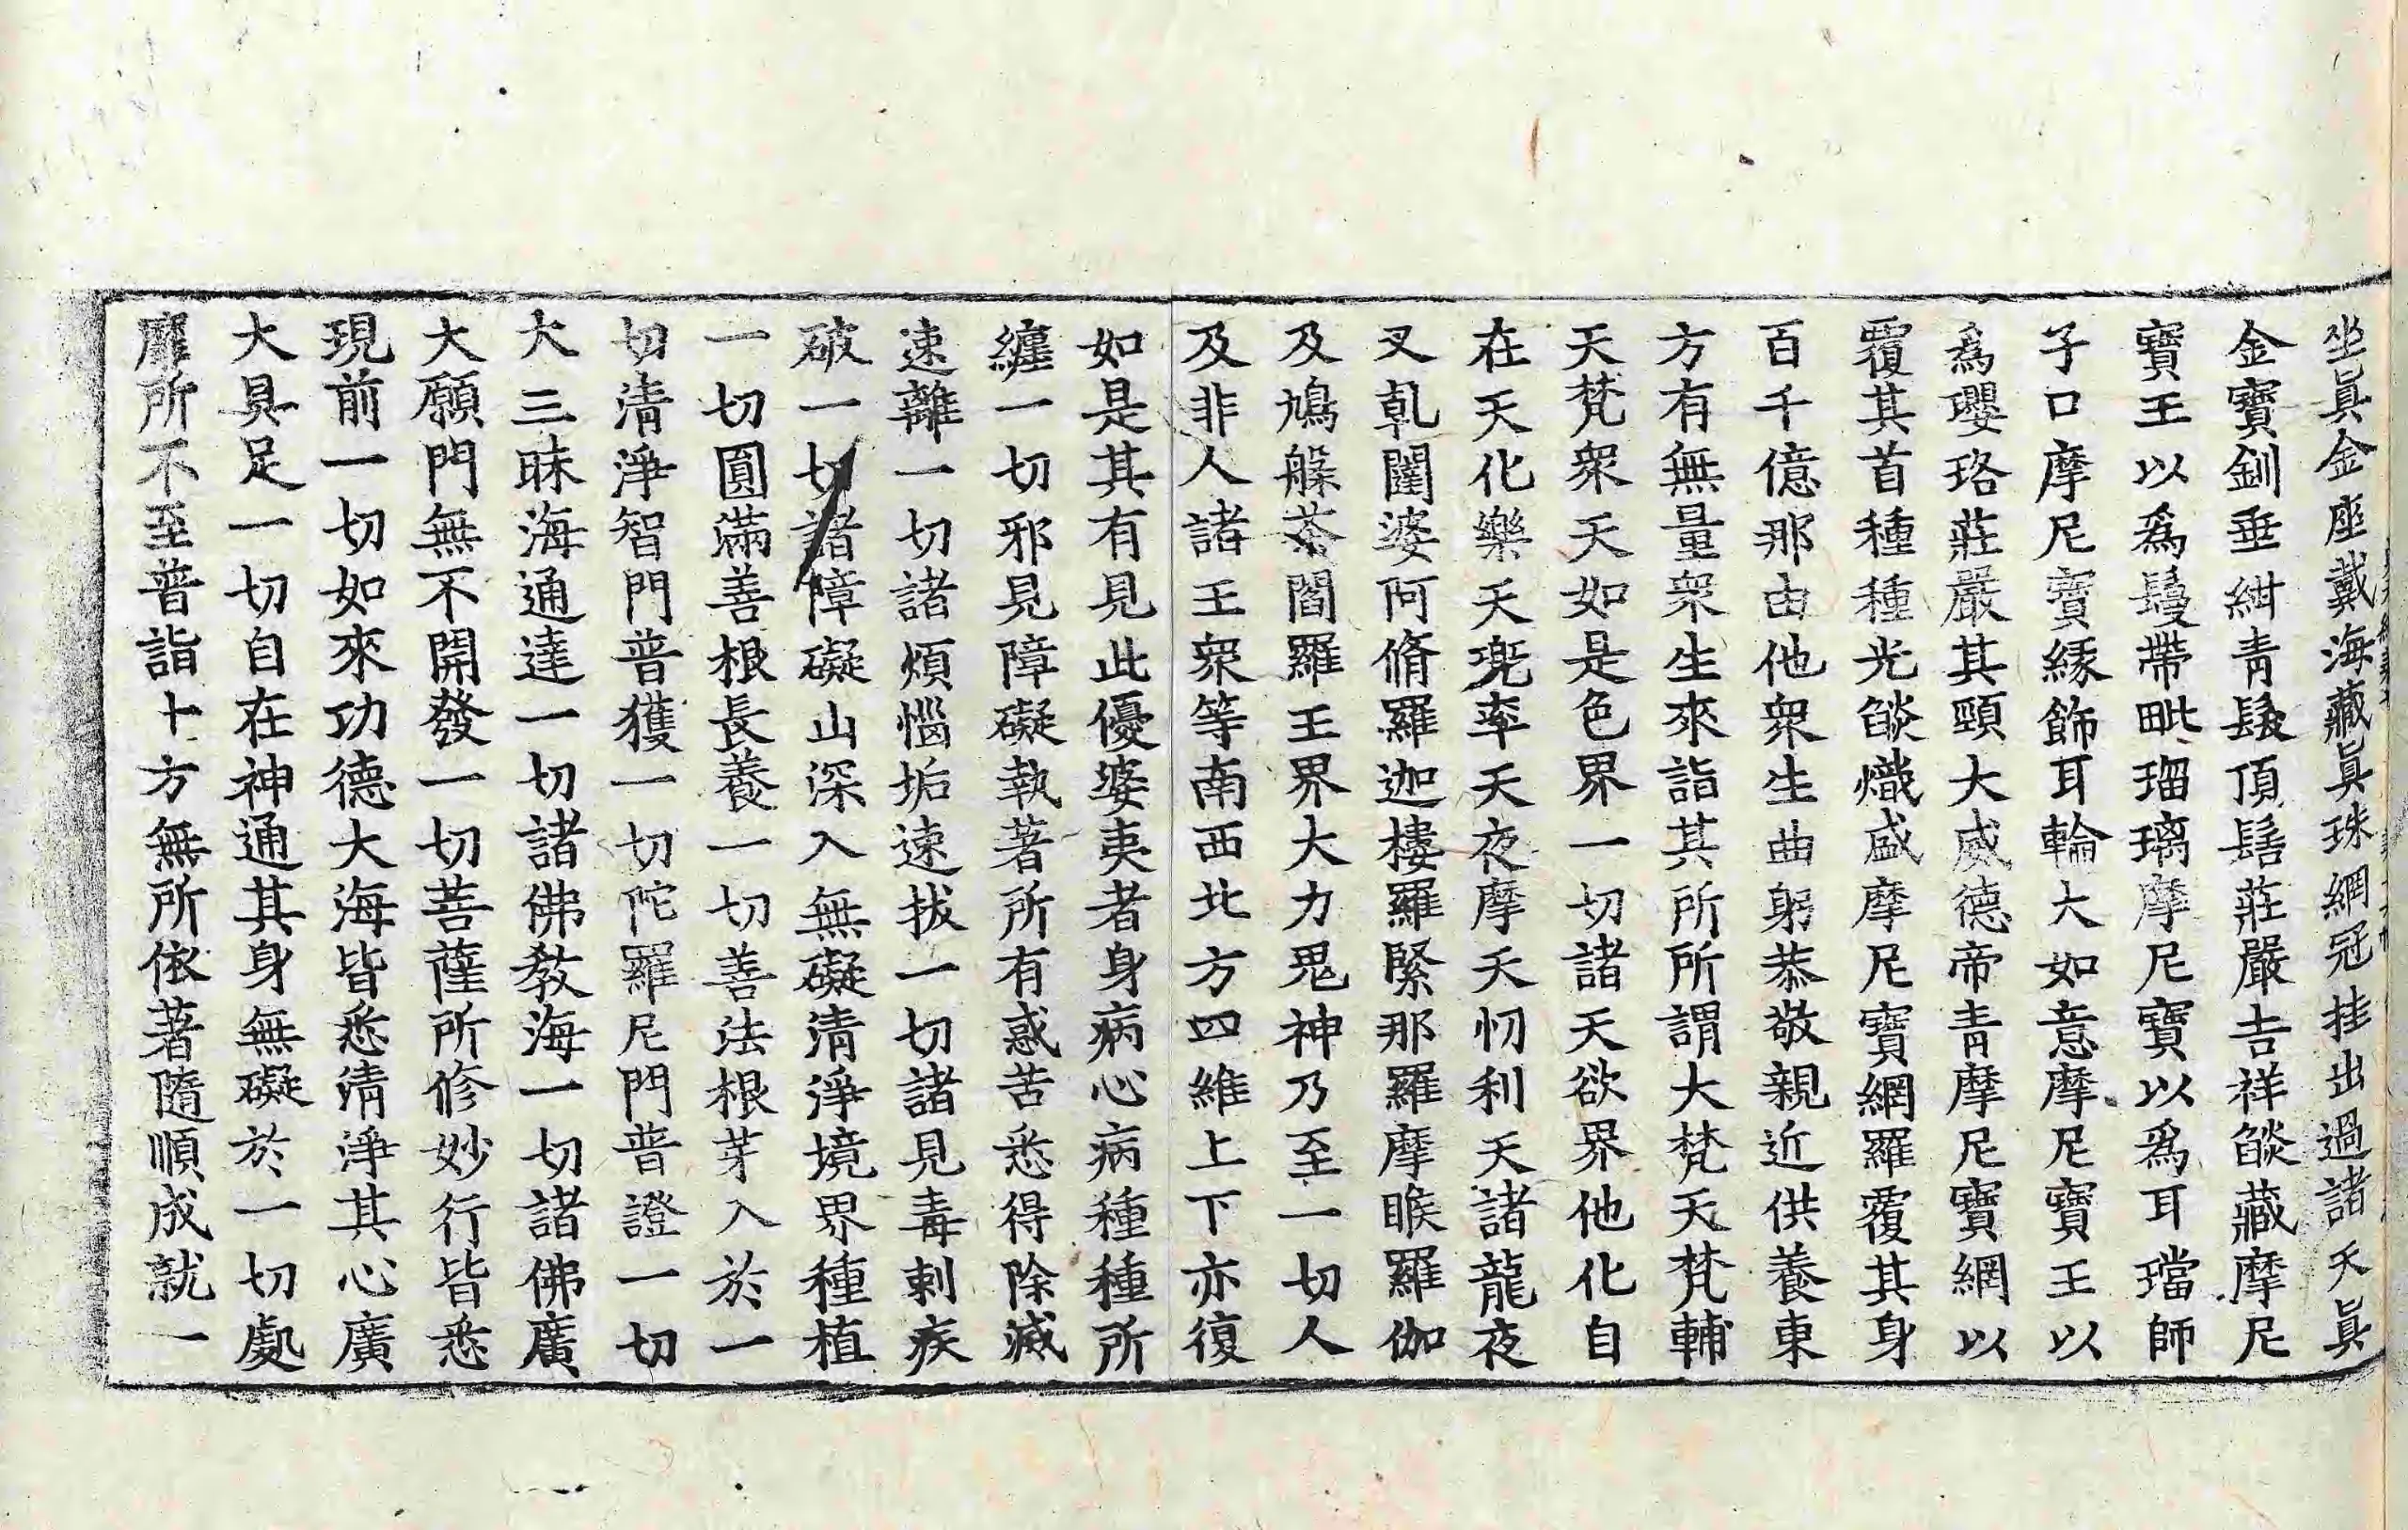 坐眞金座戴海藏眞珠網冠挂出過諸天眞
金寶釧垂紺青髮頂髻莊嚴吉祥燄藏摩尼
寶王以爲鬘帶毗瑠璃摩尼寶以爲耳璫師
子口摩尼寶緣飾耳輪大如意摩尼寶王以
爲瓔珞莊嚴其頸大威德帝青摩尼寶網以
覆其首種種光燄熾盛摩尼寶網羅覆其身
百千億那由他衆生曲躬恭敬親近供養東
方有無量衆生來詣其所所謂大梵天梵輔
天梵衆天如是色界一切諸天欲界他化自
在天化樂天兜率天夜摩天忉利天諸龍夜
叉乹闥婆阿脩羅迦樓羅緊那羅摩睺羅伽
及鳩槃茶閻羅王界大力鬼神乃至一切人
及非人諸王衆等南西北方四維上下亦復
如是其有見此優婆夷者身病心病種種所
纏一切邪見障礙執著所有惑苦悉得除滅
速離一切諸煩惱垢速拔一切諸見毒刺疾
破一切諸障礙山深入無礙清淨境界種植
一切圓滿善根長養一切善法根芽入於一
切清淨智門普獲一切陀羅尼門普證一切
大三昧海通達一切諸佛教海一切諸佛廣
大願門無不開發一切菩薩所修妙行皆悉
現前一切如來功德大海皆悉清淨其心廣
大具足一切自在神通其身無礙於一切處
靡所不至普詣十方無所依著隨順成就一